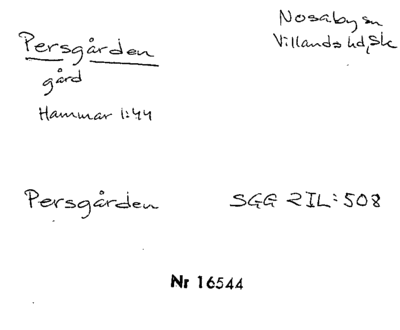 Persgården
Nosaby sn
Villands hd, Sk
gård
Hammar 1:44
Persgården
SGG RIL:508
Nr 16544